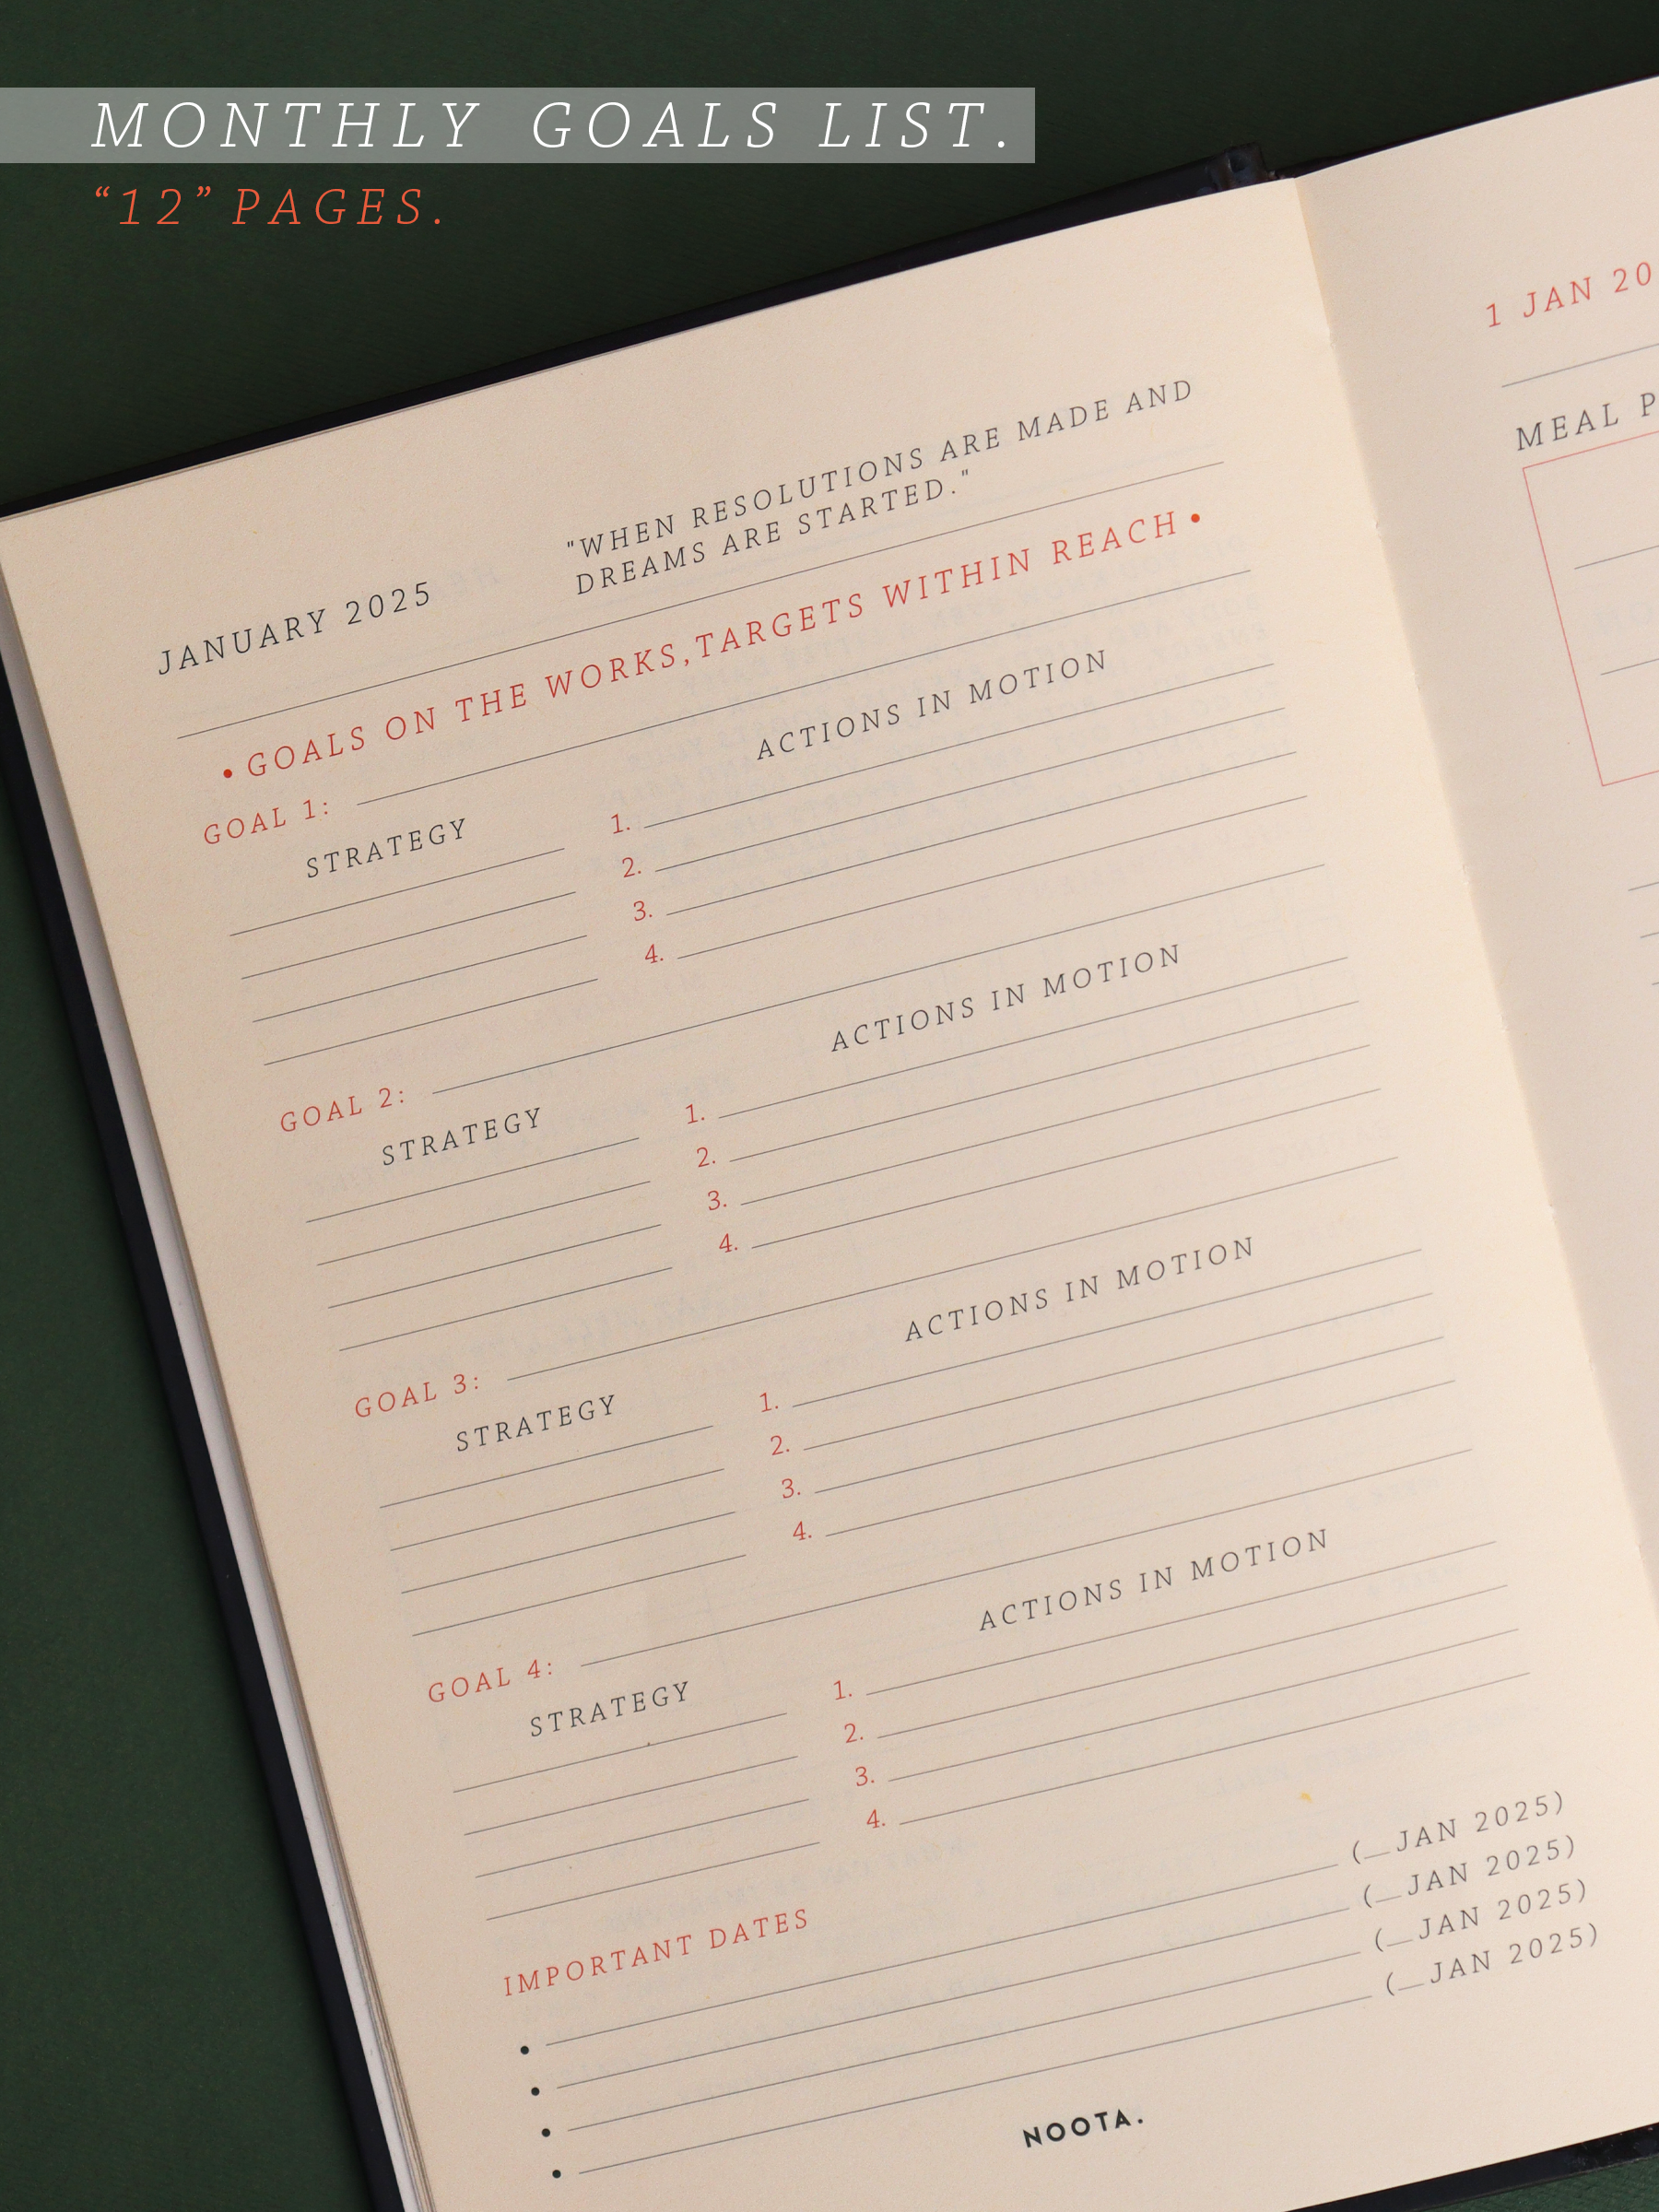 MONTHLY GOALS LIST.
“12” PAGES.
JANUARY 2025
"WHEN RESOLUTIONS ARE MADE AND
DREAMS ARE STARTED."
• GOALS ON THE WORKS,TARGETS WITHIN REACH •
GOAL 1:
STRATEGY
ACTIONS IN MOTION
1.
2.
3.
4.
GOAL 2:
STRATEGY
ACTIONS IN MOTION
1.
2.
3.
4.
GOAL 3:
STRATEGY
ACTIONS IN MOTION
1.
2.
3.
4.
GOAL 4:
STRATEGY
ACTIONS IN MOTION
1.
2.
3.
4.
IMPORTANT DATES
• (_JAN 2025)
• (_JAN 2025)
• (_JAN 2025)
• (_JAN 2025)
NOOTA.
1 JAN 20
MEAL P